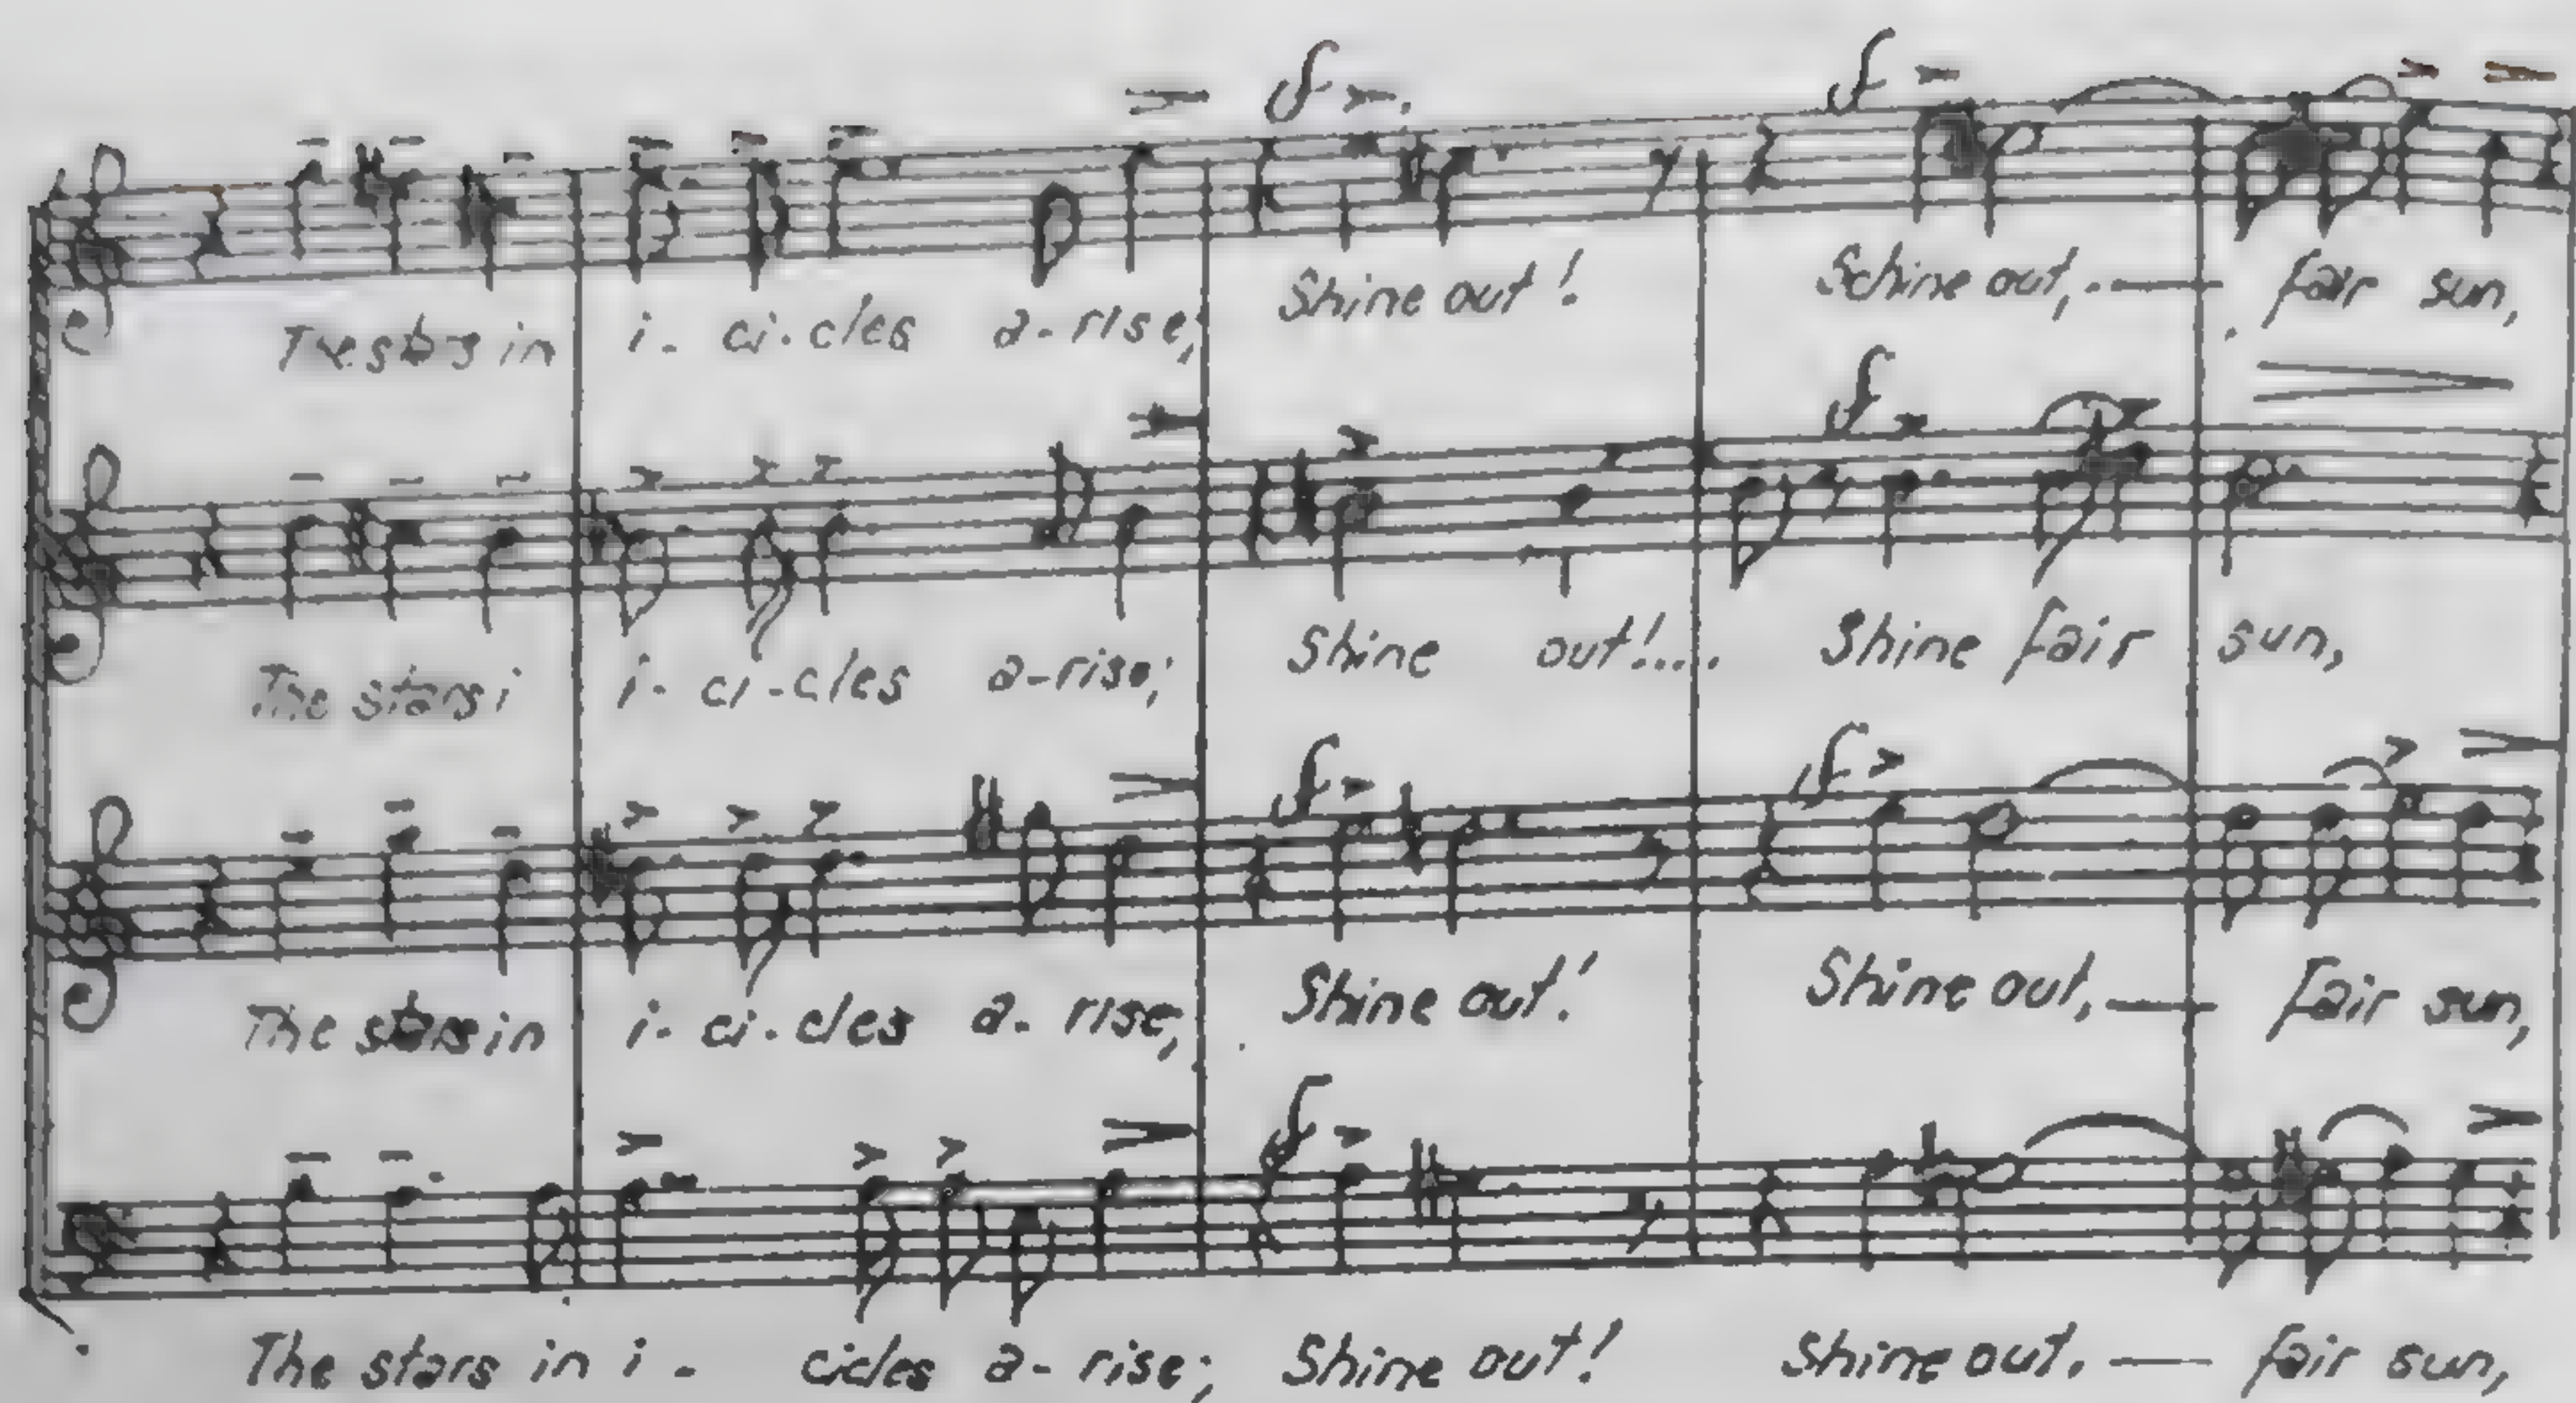 The stars in i- ci-cles a-rise; Shine out! Schine out, — fair sun,
The stars i i- ci-cles a-rise; Shine out!.... Shine fair sun,
The stars in i- ci-cles a-rise, Shine out! Shine out, — fair sun,
The stars in i- cicles a-rise; Shine out! Shine out, — fair sun,